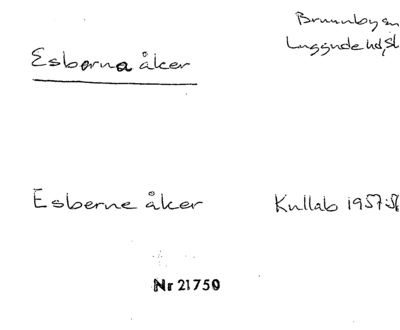 Brunnby sn
Luggude hd, Sk
Esborna åker
Esberne åker
Kullab 1957:
Nr 21750